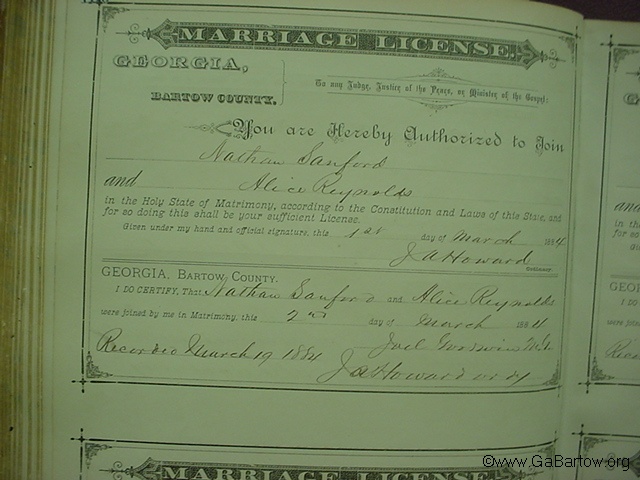 MARRIAGE LICENSE.
GEORGIA,
BARTOW COUNTY.
To any Judge, Justice of the Peace, or Minister of the Gospel:
You are Hereby Authorized to Join
Nathan Sanford
and Alice Reynolds
in the Holy State of Matrimony, according to the Constitution and Laws of this State, and
for so doing this shall be your sufficient License.
Given under my hand and official signature, this 1st day of March 1884
J A Howard
Ordinary.
GEORGIA, BARTOW COUNTY.
I DO CERTIFY, That Nathan Sanford and Alice Reynolds
were joined by me in Matrimony, this 2nd day of March 1884
Joel Goodwin M.G.
Recorded March 19 1884
J A Howard ordy
MARRIAGE LICENSE.
©www.GaBartow.org